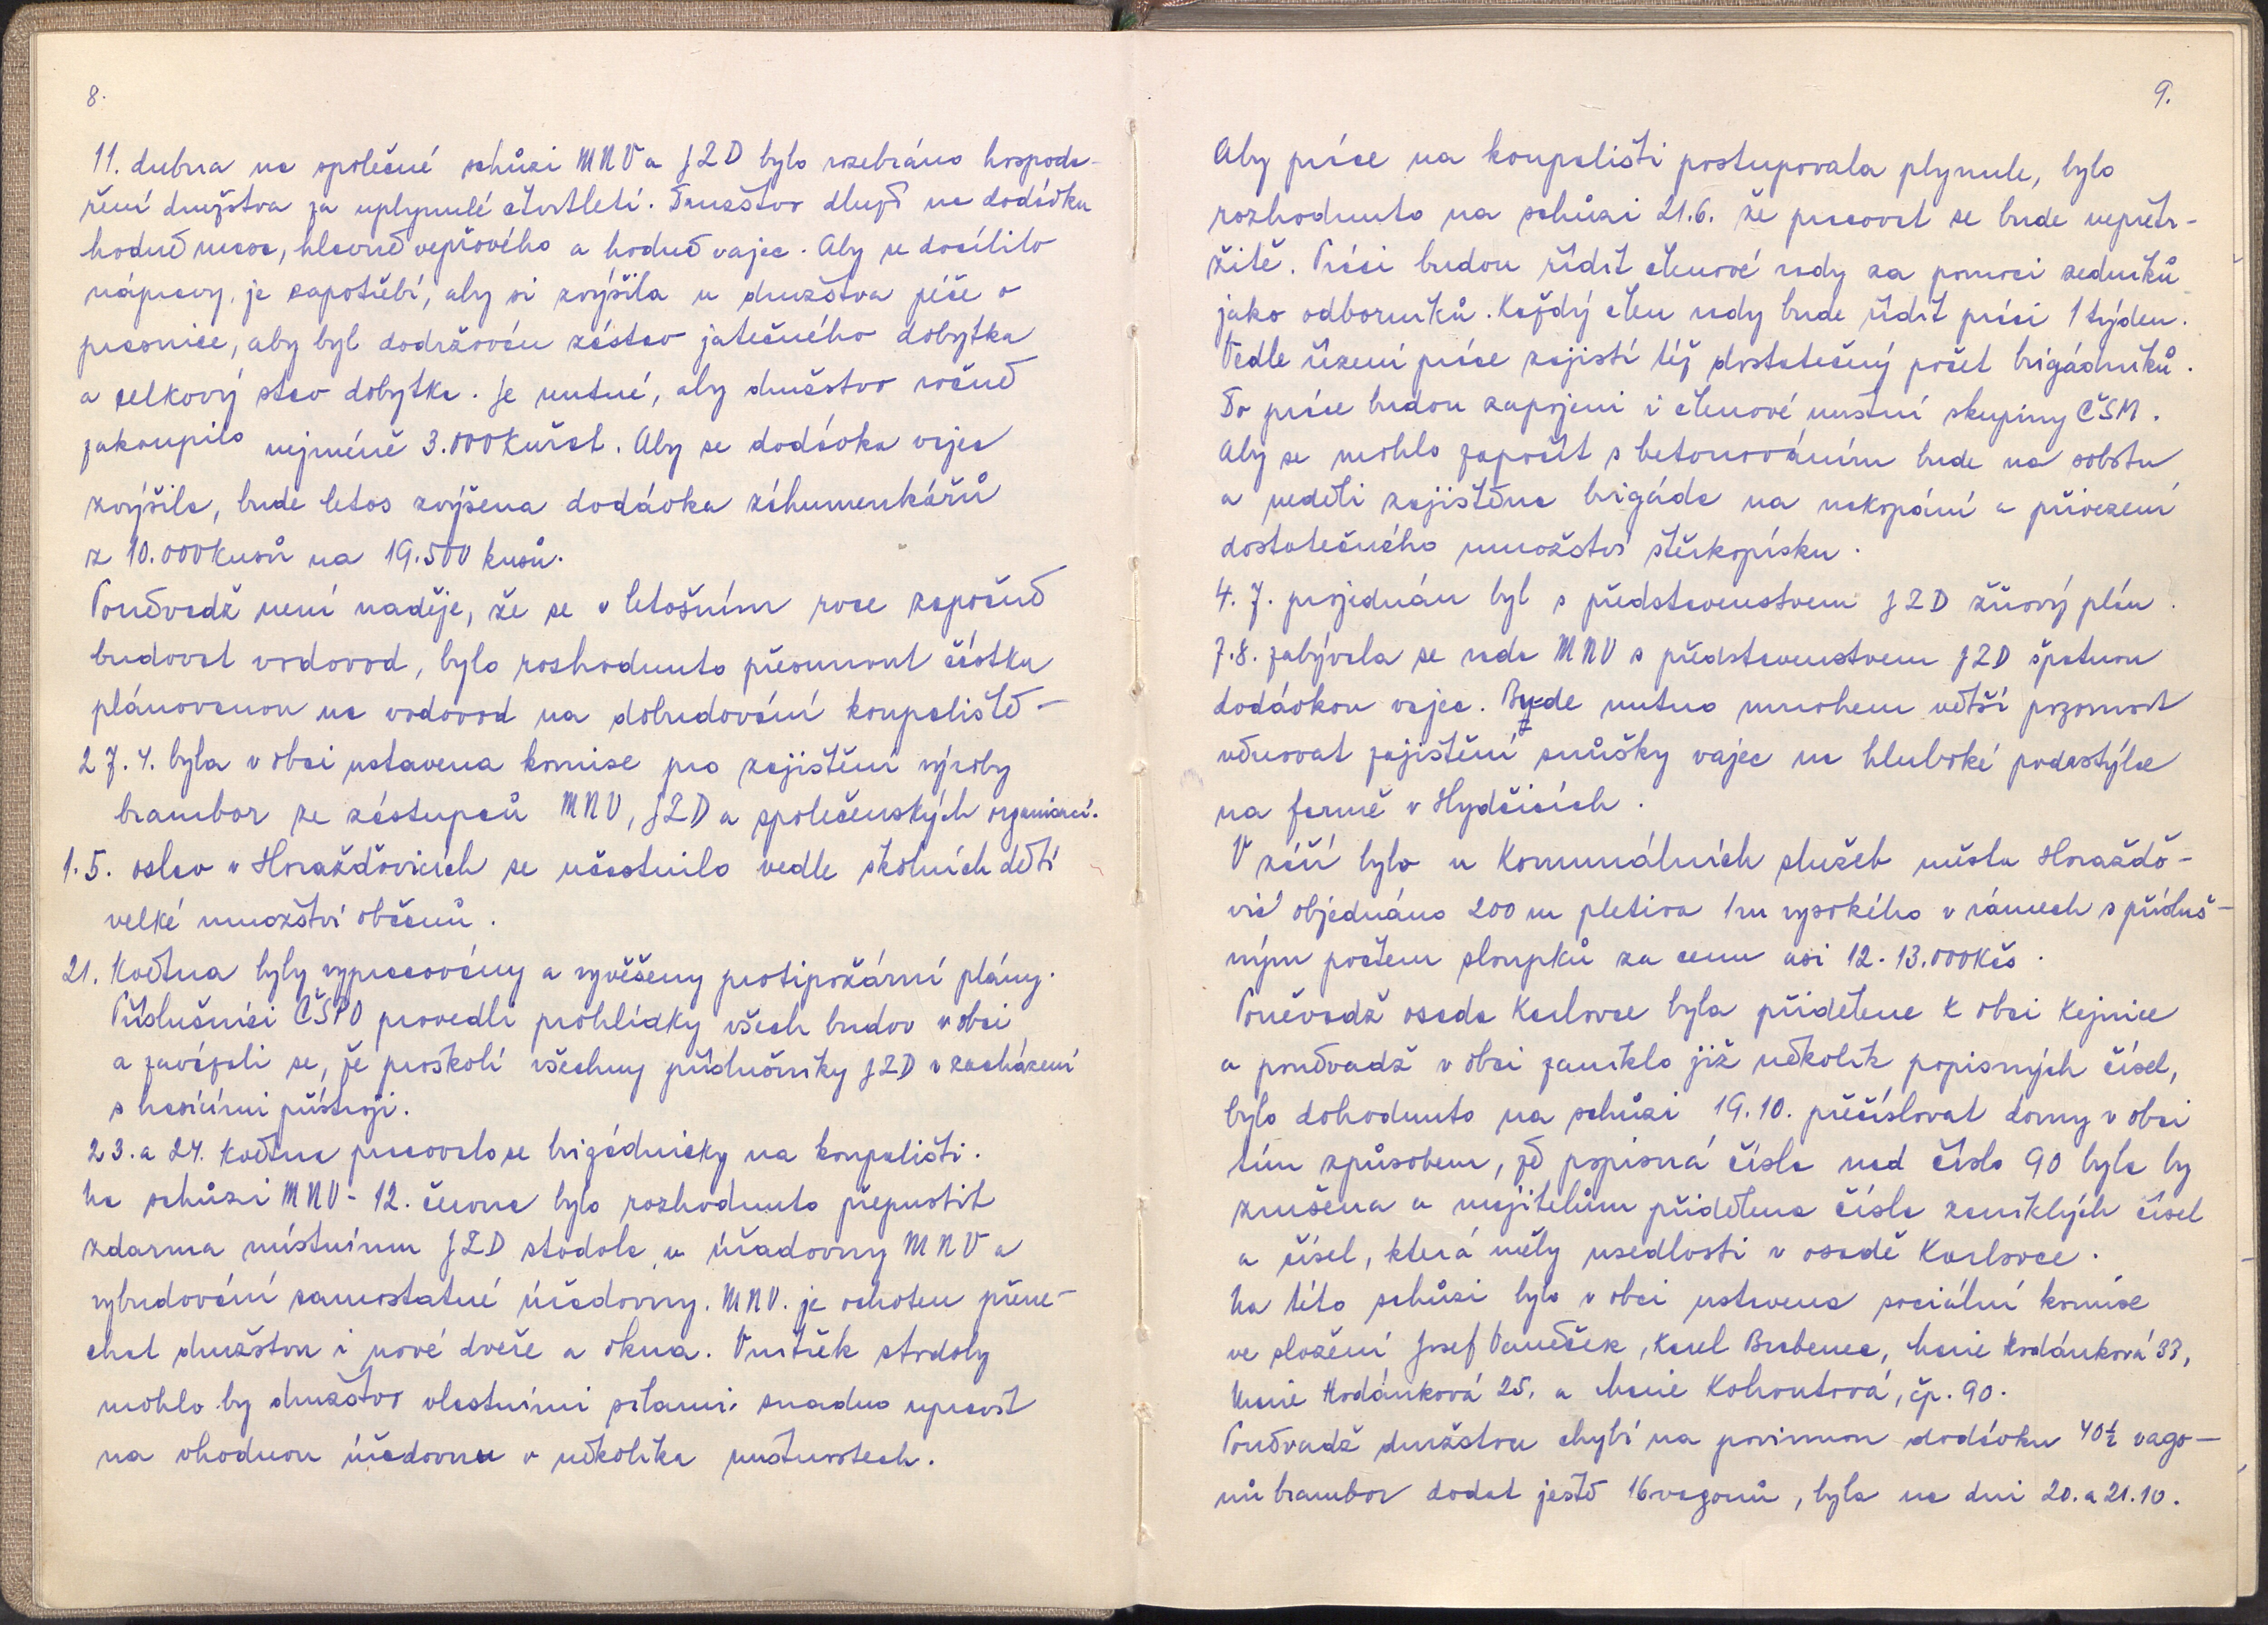 8.
11. dubna na společné schůzi MNV a JZD bylo rozebráno hospoda-
ření družstva za uplynulé čtvrtletí. Družstvo dluží na dodávku
hodně masa, hlavně vepřového a hodně vajec. Aby se docílilo
nápravy, je zapotřebí, aby si zvýšila u družstva péče o
prasnice, aby byl dodržován zástav jatečného dobytka
a celkový stav dobytka. Je nutné, aby družstvo ročně
zakoupilo nejméně 3.000 kuřat. Aby se dodávka vajec
zvýšila, bude letos zvýšena dodávka záhumenkářů
z 10.000 kusů na 19.500 kusů.
Poněvadž není naděje, že se v letošním roce započně
budovat vodovod, bylo rozhodnuto přesunout částku
plánovanou na vodovod na dobudování koupaliště –
27.4. byla v obci ustavena komise pro zajištění výroby
brambor ze zástupců MNV, JZD a společenských organizací.
1.5. oslav v Horažďovicích se účastnilo vedle školních dětí
velké množství občanů.
21. května byly vypracovány a vyvěšeny protipožární plány.
Příslušníci ČSPO provedli prohlídky všech budov v obci
a zavázali se, že proškolí všechny příslušníky JZD v zacházení
s hasícími přístroji.
23. a 24. května pracovalo se brigádnicky na koupališti.
Na schůzi MNV - 12. června bylo rozhodnuto přepustit
zdarma místnímu JZD stodola u úřadovny MNV a
vybudování samostatné úřadovny. MNV. je ochoten přene-
chat družstvu i nové dveře a okna. Vnitřek stodoly
mohlo by družstvo vlastními silami snadno upravit
na vhodnou úřadovnu o několika místnostech.
9.
Aby práce na koupališti postupovala plynule, bylo
rozhodnuto na schůzi 21.6. že pracovat se bude nepřetr-
žitě. Práci budou řídit členové rady za pomoci zedníků
jako odborníků. Každý člen rady bude řídit práci 1 týden.
Vedle řízení práce zajistí též dostatečný počet brigádníků.
Do práce budou zapojeni i členové místní skupiny ČSM.
Aby se mohlo započít s betonováním bude na sobotu
a neděli zajištěna brigáda na nakopání a přivezení
dostatečného množství štěrkopísku.
4.7. projednán byl s představenstvem JZD žňový plán.
7.8. zabývala se rada MNV s představenstvem JZD špatnou
dodávkou vajec. Bude nutno mnohem větší pozornost
věnovat zajištění snůšky vajec na hluboké podestýlce
na farmě v Hydčicích.
V září bylo u Komunálních služeb města Horažďo-
vic objednáno 200 m pletiva 1 m vysokého v rámech s přísluš-
ným počtem sloupků za cenu asi 12.-13.000 Kčs.
Poněvadž osada Karlovce byla přidělena k obci Kejnice
a poněvadž v obci zaniklo již několik popisných čísel,
bylo dohodnuto na schůzi 19.10. přečíslovat domy v obci
tím způsobem, že popisná čísla nad číslo 90 byla by
zrušena a majitelům přidělena čísla zaniklých čísel
a čísel, která měly usedlosti v osadě Karlovce.
Na této schůzi byla v obci ustavena sociální komise
ve složení Josef Vaněček, Karel Brabenec, Marie Hodánková 33,
Marie Hodánková 25. a Marie Kohoutová, čp. 90.
Poněvadž družstvu chybí na povinnou dodávku 40½ vago-
nů brambor dodat ještě 16 vagonů, byla na dni 20. a 21.10.